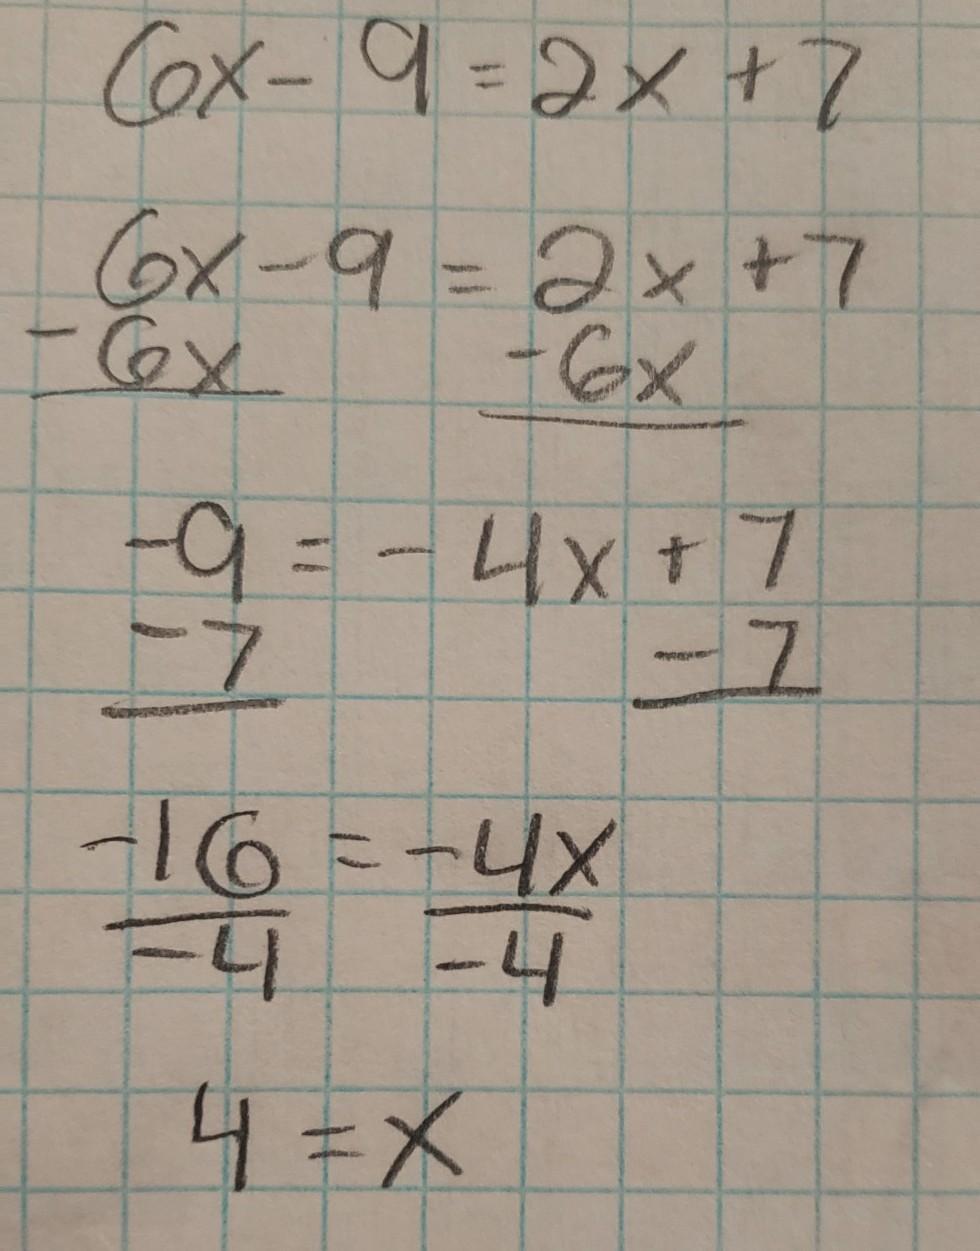 6x - 9 = 2x + 7
6x - 9 = 2x + 7
- 6x - 6x
-9 = - 4x + 7
- 7 - 7
-16 = -4x
-4 -4
4 = x